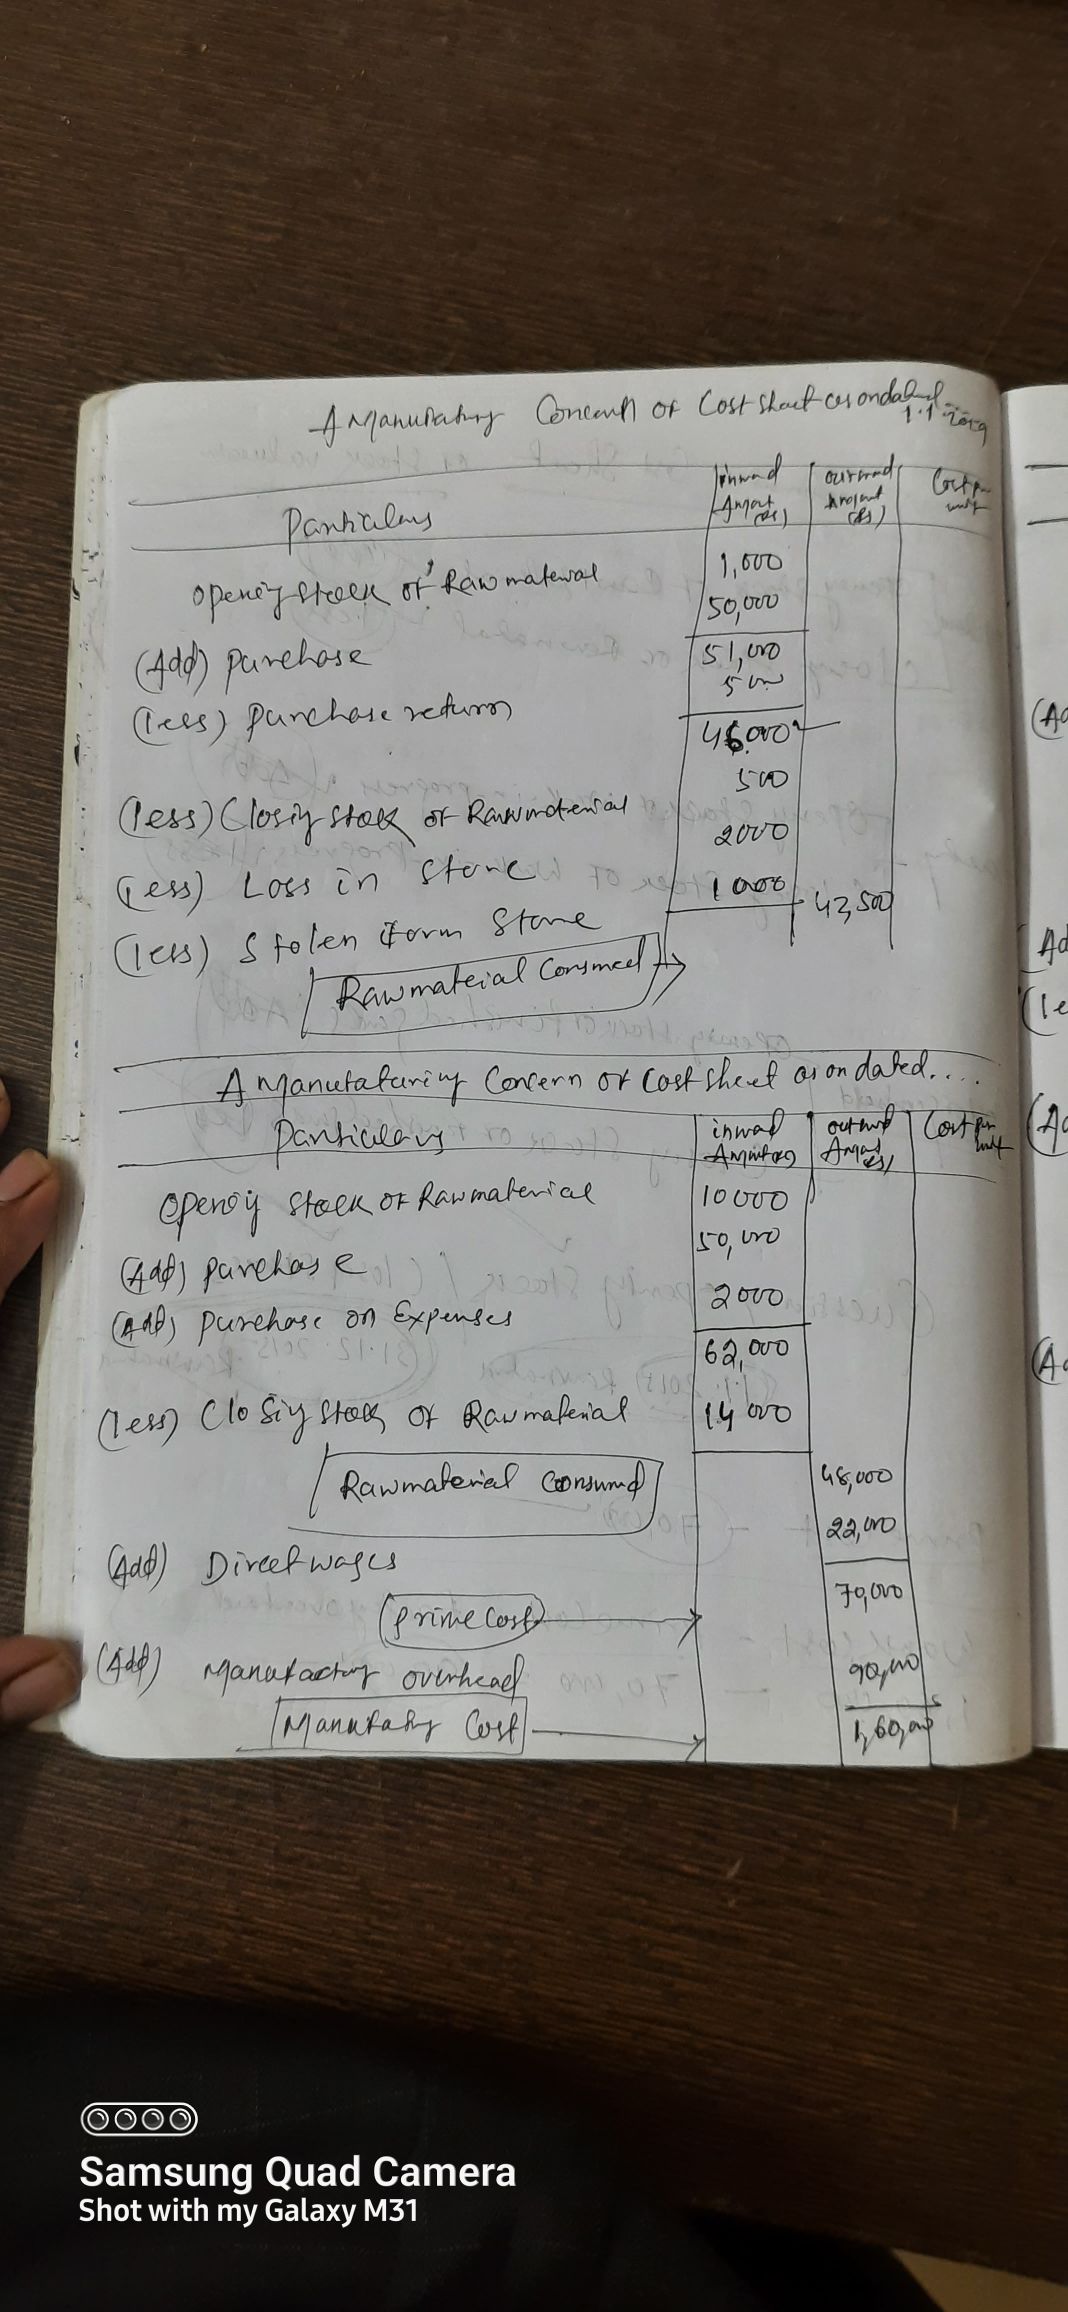 A Manufacturing Concern of Cost sheet as on dated 1.1.2019
Particulars inward Amount (Rs) outward Amount (Rs) Cost per unit
Opening stock of Raw material 1,000
50,000
(Add) purchase 51,000
5000
(less) purchase return
46,000
500
(less) Closing stock of Raw material
2000
(less) Loss in Store
1000 42,500
(less) Stolen form Store
Raw material Consumed
A Manufacturing Concern of Cost sheet as on dated....
Particulars inward Amount (Rs) outward Amount (Rs) Cost per unit
Opening stock of Raw material 10000
(Add) purchase 50,000
(Add) purchase on Expenses 2000
62,000
(less) Closing stock of Raw material 14000
Raw material Consumed 48,000
22,000
(Add) Direct wages
70,000
prime Cost
(Add) Manufacturing overhead 90,000
Manufacturing Cost 1,60,000
(Ad
Ad
(le
(A
(A
Samsung Quad Camera
Shot with my Galaxy M31